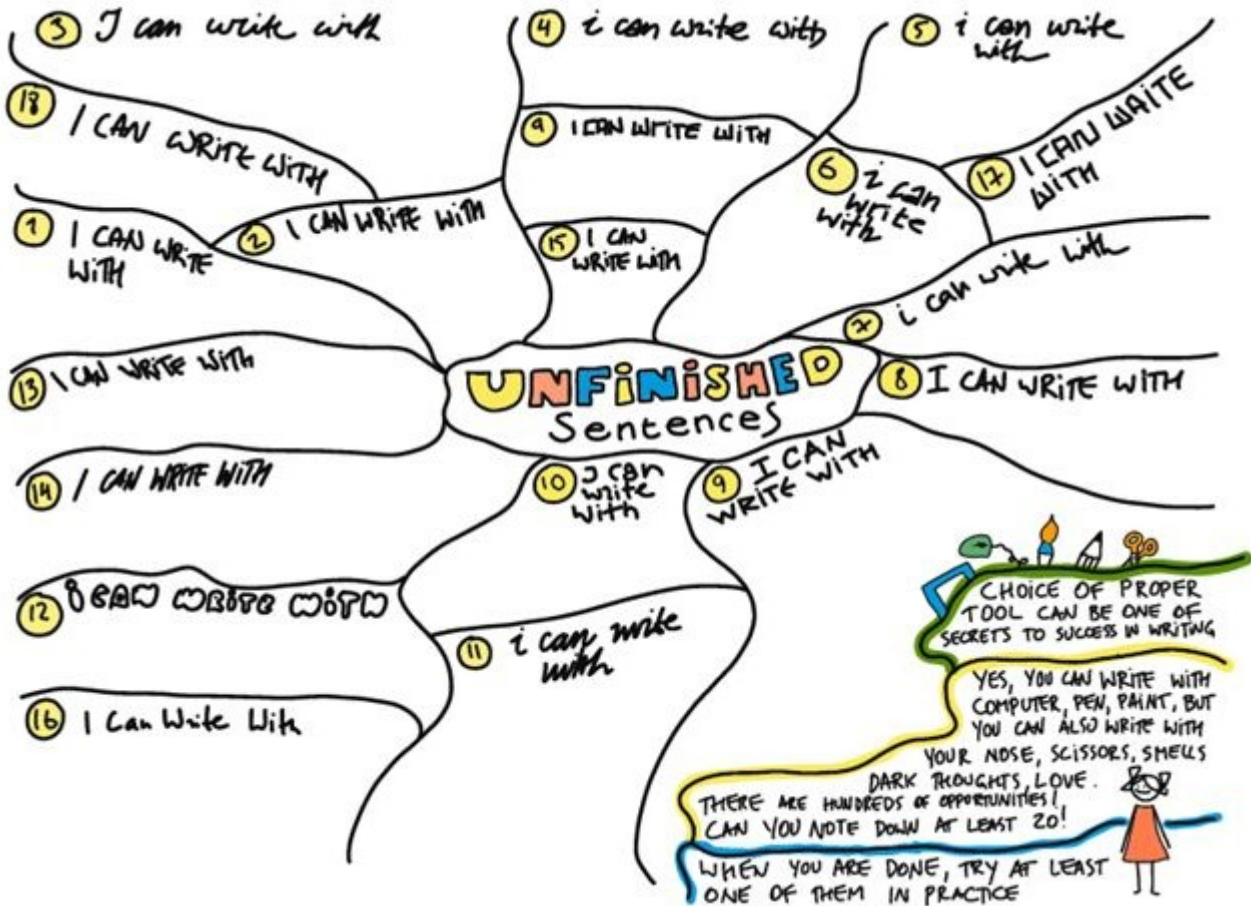 3 I can write with
4 i can write with
5 i can write
with
18 I CAN WRITE WITH
9 I CAN WRITE WITH
17 I CAN WRITE
WITH
6 i can
write
with
1 I CAN WRITE
WITH
2 I CAN WRITE WITH
15 I CAN
WRITE WITH
7 i can write with
13 I CAN WRITE WITH
UNFiNiSHED
Sentences
8 I CAN WRITE WITH
14 I CAN WRITE WITH
10 I can
write
with
9 I CAN
WRITE WITH
12 i CAN WRITE WITH
11 i can write
with
16 I Can Write With
CHOICE OF PROPER
TOOL CAN BE ONE OF
SECRETS TO SUCCESS IN WRITING
YES, YOU CAN WRITE WITH
COMPUTER, PEN, PAINT, BUT
YOU CAN ALSO WRITE WITH
YOUR NOSE, SCISSORS, SMELLS
DARK THOUGHTS, LOVE.
THERE ARE HUNDREDS OF OPPORTUNITIES!
CAN YOU NOTE DOWN AT LEAST 20!
WHEN YOU ARE DONE, TRY AT LEAST
ONE OF THEM IN PRACTICE